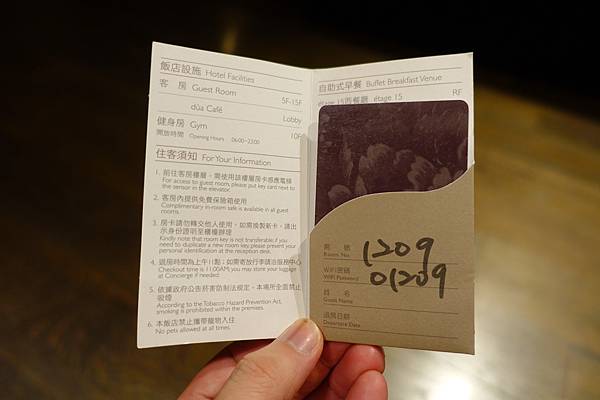 飯店設施 Hotel Facilities
客 房 Guest Room 5F-15F
dùa Café Lobby
健身房 Gym 10F
開放時間 Opening Hours 06:00~22:00
住客須知 For Your Information
1. 前往客房樓層，需使用該樓層房卡感應電梯
For access to guest room, please put key card next to
the sensor in the elevator.
2. 客房內提供免費保險箱使用
Complimentary in-room safe is available in all guest
rooms.
3. 房卡請勿轉交他人使用，如需複製新卡，請出
示身份證明至櫃檯辦理
Kindly note that room key is not transferable; if you
need to duplicate a new room key, please present your
personal identification at the reception desk.
4. 退房時間為上午11點；如需寄放行李請洽服務中心
Checkout time is 11:00AM; you may store your luggage
at Concierge if needed.
5. 依據政府公告菸害防制法規定，本場所全面禁止
吸煙
According to the Tobacco Hazard Prevention Act,
smoking is prohibited within the premises.
6. 本飯店禁止攜帶寵物入住
No pets allowed at all times.
自助式早餐 Buffet Breakfast Venue
étage 15西餐廳 étage 15 RF
房 號 1209
Room No.
WiFi密碼 01209
WiFi Password
姓 名
Guest Name
退房日期
Departure Date